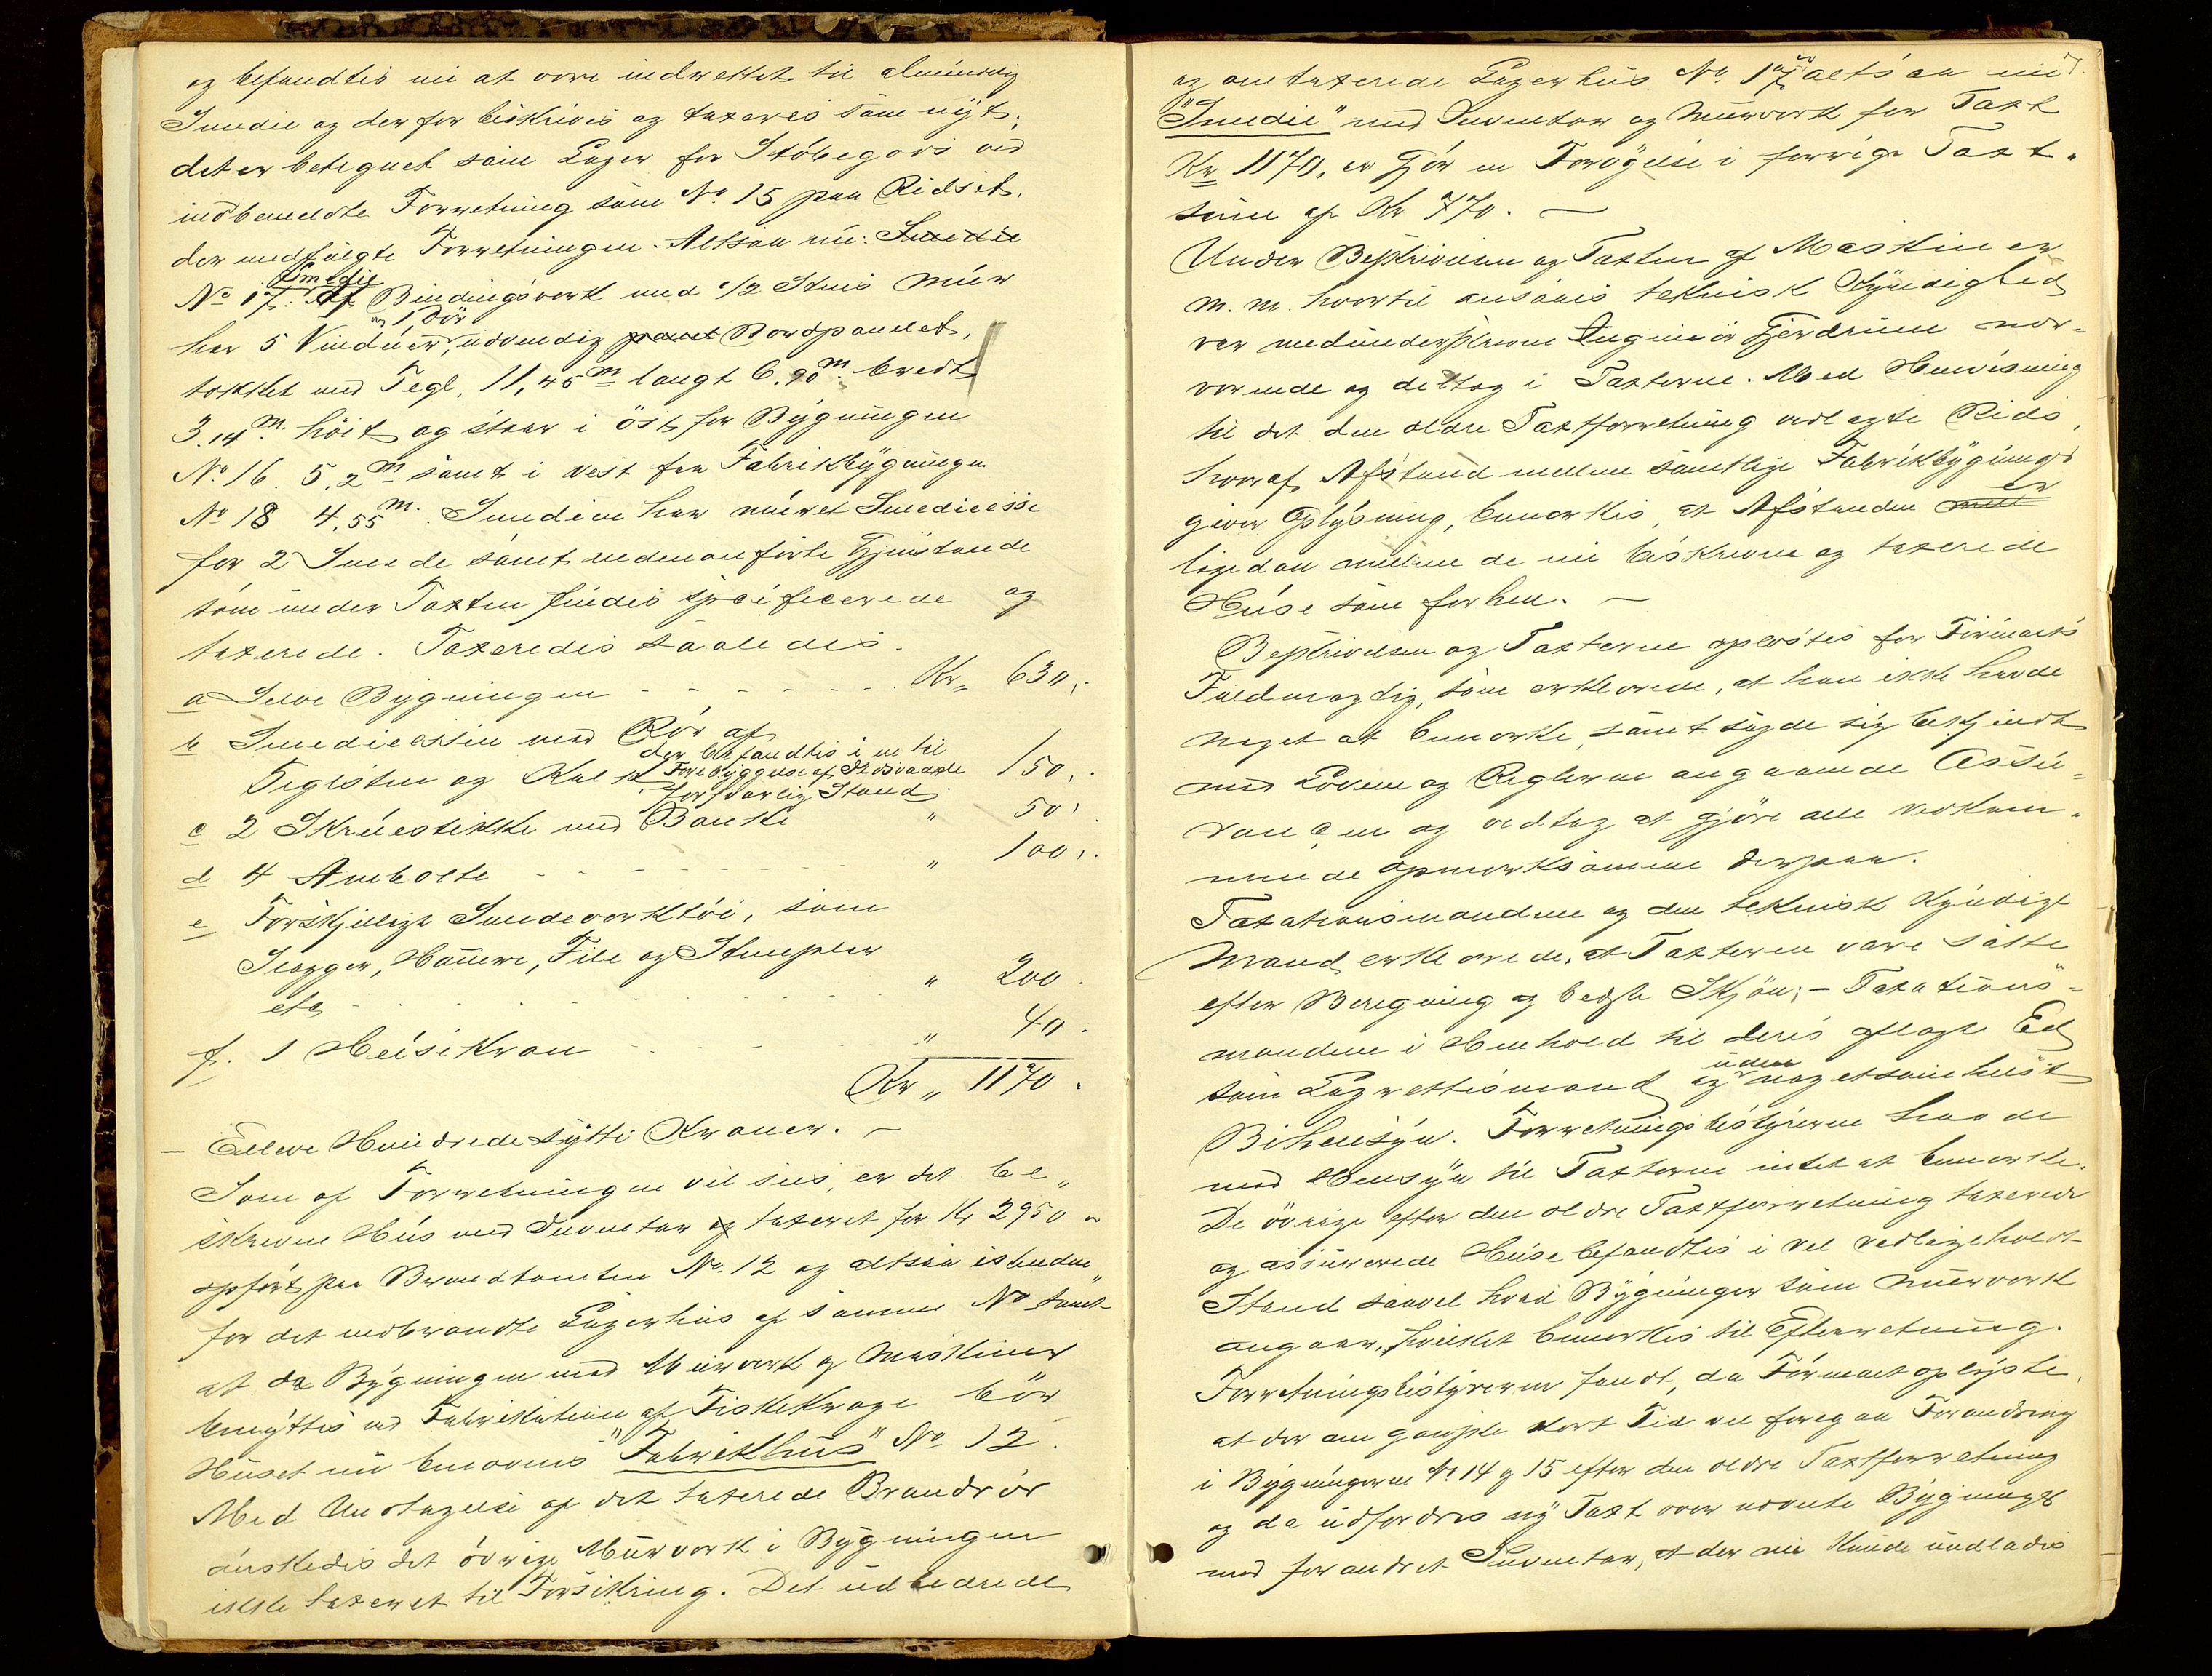 og befandtes nu at være indrettet til almindelig
Smedie og derfor beskrives og taxeres som nyt;
det er betegnet som Lager for Støbegods ved
indbemeldte Forretning som No 15 paa Ridset,
der medfulgte Forretningen. Altsaa nu: Smedie
No 17. Smedie Af Bindingsværk med 1/2 Stens Muur
har 5 Vinduer, og 1 Dör udvendig panel Bordpanelet,
tækket med Tegl, 11,45 m langt 6,90 m bredt
3,14 m. höit og staar i öst for Bygningen
No 16 5,2 m samt i vest fra Fabrikbygningen
No 18 4,55 m. Smedien har muret Smedieesse
for 2 Smede samt nedenanførte Gjenstande
som under Taxten findes specificerede og
taxerede. Taxeredes saaledes.
a Selve Bygningen - - - - - - - Kr. 630,-
b Smedieessen med Rör af
Teglsten og Kalk der befandtes i en til Forebyggelse af Ildsvaade forsvarlig Stand 150,-
c 2 Skruestikke med Bænke " 50,
d 4 Ambolte - - - - - - " 100,.
e Forskjellige Smedeværktöi, som
Slægger, Hamre, File og Stempler
etc - - - - - - " 200.
f. 1 Heisekran - - - - - " 40.
Kr " 1170.
— Elleve Hundrede sytti Kroner. —
Som af Forretningen vil sees, er det be„
skrevne Hus med Inventar og taxeret for Kr 2950 er
opfört paa Brandtomten No. 12 og altsaa istedet„
for det nedbrændte Lagerhus af samme No samt
at da Bygningen med Murværk og Maskiner
benyttes ved Fabrikation af Fiskekroge bör
Huset nu benævnes "Fabrikhus" No 12.
Med Undtagelse af det taxerede Brandrör
önskedes det övrige Murværk i Bygningen
ikke taxeret til Forsikring. Det udbedrede
og omtaxerede Lagerhus No. 17, altsaa nu
"Smedie" med Inventar og Murværk for Taxt
Kr 1170, er Gjör en Forögelse i forrige Taxt-
sum af Kr 770. —
Under Beskrivelsen og Taxten af Maskiner
m. m. hvortil ansaaes teknisk Kyndighed
var medunderskrevne Ingeniör Gjerdrum nær-
værende og deltog i Taxterne. Med Henvisning
til det den ældre Taxtforretning vedlagte Rids,
hvoraf Afstand mellem samtlige Fabrikbygninger
giver Oplysning, bemærkes, at Afstanden er
ligedan mellem de nu beskrevne og taxerede
Huse som forhen. —
Beskrivelsen og Taxterne oplæstes for Firmaets
Fuldmægtig, som erklærede, at han ikke havde
noget at bemærke, samt sagde sig bekjendt
med Loven og Reglerne angaaende Assu-
rancen og vedtog at gjöre alle vedkom-
mende opmærksomme derpaa.
Taxationsmændene og den teknisk kyndige
Mand erklærede, at Taxterne vare satte
efter Beregning og bedste Skjön; - Taxations-
mændene i Henhold til deres aflagte Ed
som Lagrettesmænd og uden nogetsomhelst
Bihensyn. Forretningsbestyreren havde
med Hensyn til Taxterne intet at bemærke.
De övrige efter den ældre Taxtforretning taxerede
og assurerede Huse befandtes i vel vedligeholdt
Stand saavel hvad Bygninger som Muurværk
angaar, hvilket bemærkes til Efterretning.
Forretningsbestyreren fandt, da Firmaet oplyste,
at der om ganske kort Tid vil foregaa Forandring
i Bygningerne No 14 og 15 efter den ældre Taxtforretning
og da udfordres ny Taxt over nævnte Bygninger
med forandret Inventar, at der nu kunde undlades